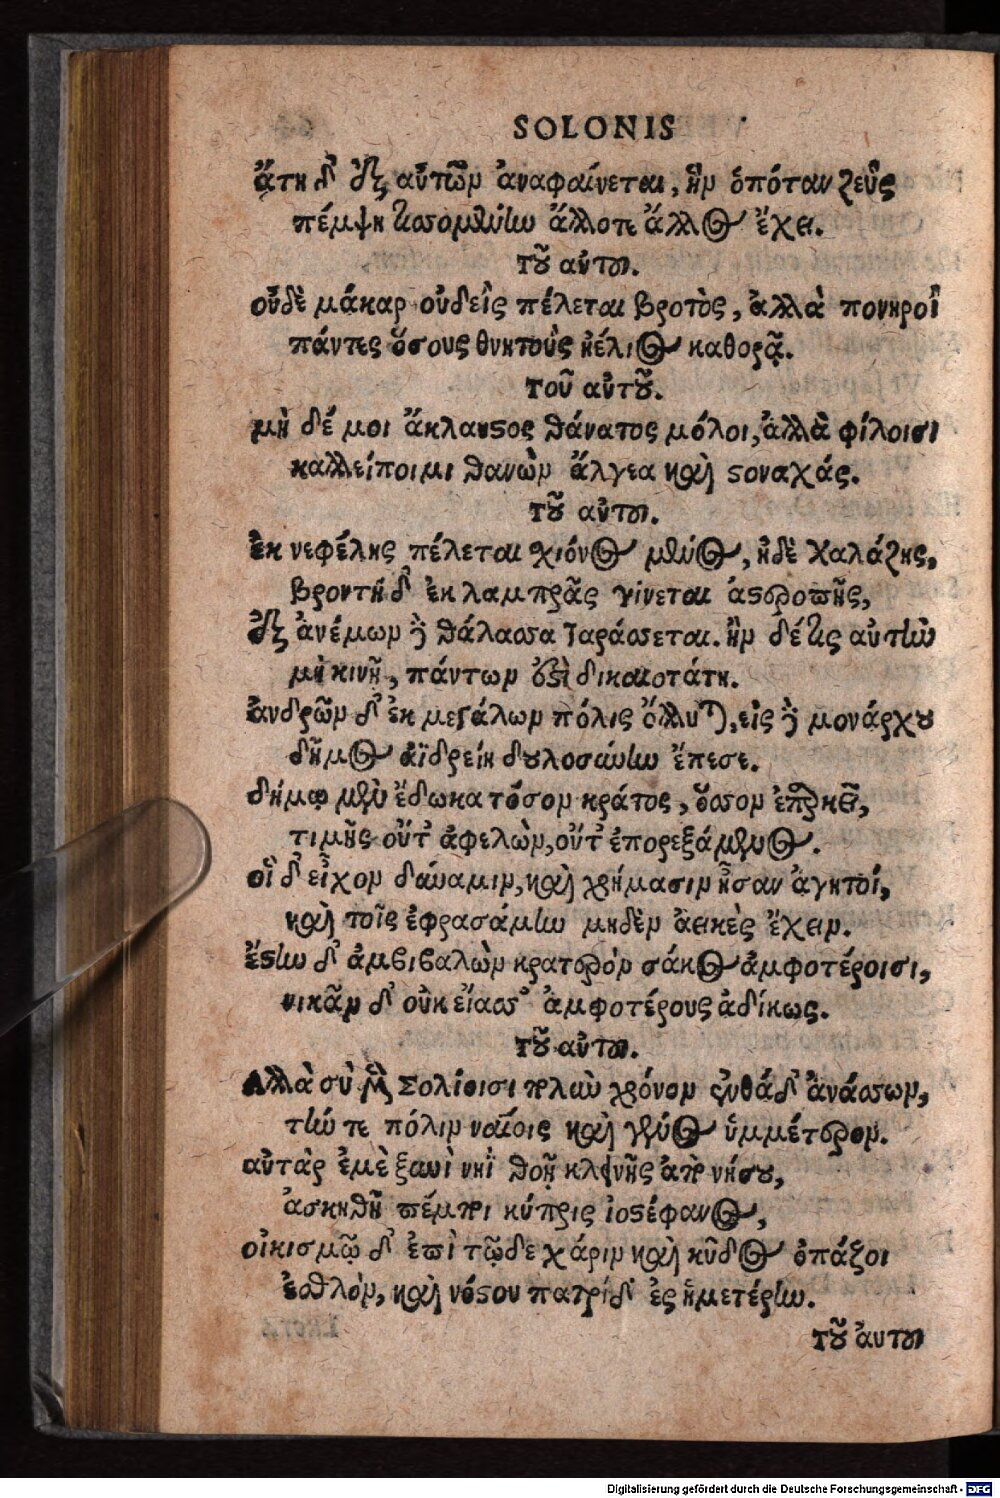 SOLONIS
ἄτη δ' ἐξ αὐτῶν ἀναφαίνεται, ἣν ὁπόταν ζεὺς
πέμψη τισομένην ἄλλοτε ἄλλος ἔχει.
τοῦ αὐτοῦ.
οὐδὲ μάκαρ οὐδεὶς πέλεται βροτὸς, ἀλλὰ πονηροὶ
πάντες ὅσους θνητοὺς ἠέλιος καθορᾷ.
τοῦ αὐτοῦ.
μὴ δέ μοι ἄκλαυστος θάνατος μόλοι, ἀλλὰ φίλοισι
καλλείποιμι θανὼν ἄλγεα καὶ στοναχάς.
τοῦ αὐτοῦ.
ἐκ νεφέλης πέλεται χιόνος μένος, ἠδὲ χαλάζης,
βροντὴ δ' ἐκ λαμπρᾶς γίνεται ἀστροπῆς,
ἐξ ἀνέμων δὲ θάλασσα ταράσσεται. ἢν δέ τις αὐτὴν
μὴ κινῇ, πάντων ἐστὶ δικαιοτάτη.
ἀνδρῶν δ' ἐκ μεγάλων πόλις ὄλλυται, εἰς δὲ μονάρχου
δῆμος ἀϊδρείη δουλοσύνην ἔπεσε.
δήμῳ μὲν ἔδωκα τόσον κράτος, ὅσσον ἐπαρκεῖ,
τιμῆς οὔτ' ἀφελὼν, οὔτ' ἐπορεξάμενος.
οἳ δ' εἶχον δύναμιν, καὶ χρήμασιν ἦσαν ἀγητοί,
καὶ τοῖς ἐφρασάμην μηδὲν ἀεικὲς ἔχειν.
ἔστην δ' ἀμφιβαλὼν κρατερὸν σάκος ἀμφοτέροισι,
νικᾶν δ' οὐκ εἴασσ' ἀμφοτέρους ἀδίκως.
τοῦ αὐτοῦ.
Ἀλλὰ σὺ μὲν Σολίοισι πολὺν χρόνον ἐνθάδ' ἀνάσσων,
τήν τε πόλιν ναίοις καὶ γένος ὑμμέτερον.
αὐτὰρ ἐμὲ ξὺν νηῒ θοῇ κλεινῆς ἀπὸ νήσου,
ἀσκηθῆ πέμποι κύπρις ἰοστέφανος,
οἰκισμῷ δ' ἐπὶ τῷδε χάριν καὶ κῦδος ὀπάζοι
ἐσθλὸν, καὶ νόστον πατρίδ' ἐς ἡμετέρην.
τοῦ αὐτοῦ
Digitalisierung gefördert durch die Deutsche Forschungsgemeinschaft - DFG